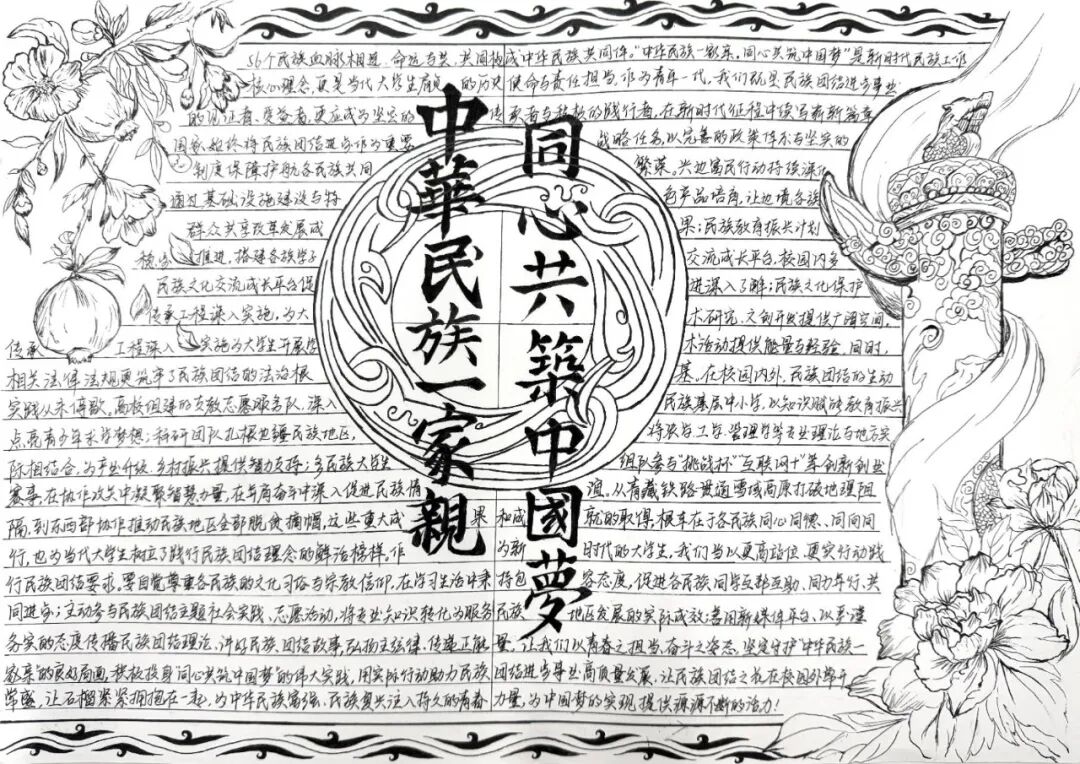 中華民族一家親
同心共築中國夢
56个民族血脉相连、命运与共、共同构成中华民族共同体。"中华民族一家亲,同心共筑中国梦"是新时代民族工作
核心理念,更是当代大学生肩负的历史使命与责任担当。作为青年一代,我们既是民族团结进步事业
的见证者、受益者,更应成为坚定的传承者与积极的践行者,在新时代征程中续写崭新篇章
国家始终将民族团结进步作为重要战略任务,以完善的政策体系与坚实的
制度保障护航各民族共同繁荣。兴边富民行动持续深化
通过基础设施建设与特色产品培育,让边境各族
群众共享改革发展成果;民族教育振兴计划
推进,搭建各族学子交流成长平台,校园内多
民族文化交流成长平台促进深入了解;民族文化保护
传承工程深入实施,为大术研究、文创开发提供广阔空间,
传承工程深入实施为大学生开展学术活动提供能量与经验,同时,
相关法律法规更筑牢了民族团结的法治根基。在校园内外,民族团结的生动
实践从未停歇。高校组建的支教志愿服务队,深入民族基层中小学,以知识赋能教育振兴
点亮青少年求学梦想;科研团队扎根边疆民族地区,将农学、工学、管理学等专业理论与地方实
际相结合,为产业升级、乡村振兴提供智力支持;多民族大学生组队参与"挑战杯""互联网+"等创新创业
赛事,在协作攻关中凝聚智慧力量,在并肩奋斗中深入促进民族情谊。从青藏铁路贯通雪域高原打破地理阻
隔,到东西部协作推动民族地区全部脱贫摘帽,这些重大成果和成就的取得,根本在于各民族同心同德、同向同
行,也为当代大学生树立了践行民族团结理念的鲜活榜样。作为新时代的大学生,我们当以更高站位、更实行动践
行民族团结要求。要自觉尊重各民族的文化习俗与宗教信仰,在学习生活中秉持包容态度,促进各民族同学互帮互助、同力年行、共
同进步;主动参与民族团结主题社会实践、志愿活动,将专业知识转化为服务民族地区发展的实际成效;善用新媒体平台,以严谨
务实的态度传播民族团结理论,讲好民族团结故事,弘扬主旋律、传递正能量。让我们以青春之担当、奋斗之姿态,坚定守护"中华民族一
家亲"的良好局面,积极投身"同心共筑中国梦"的伟大实践,用实际行动助力民族团结进步事业高质量发展,让民族团结之花在校园外常开
常盛,让石榴紧紧拥抱在一起,为中华民族富强、民族复兴注入持久的青春力量,为中国梦的实现提供源源不断的活力!